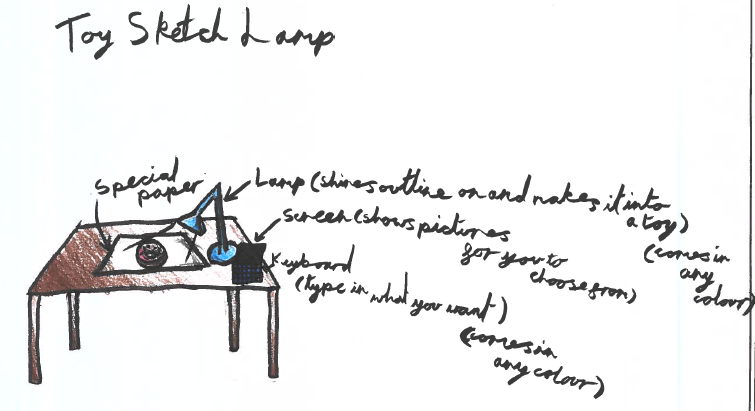 Toy Sketch Lamp
Special
paper
Lamp (shines outline on and makes it into
a toy)
(comes in
any
colour)
Screen (shows pictures
for you to
choose from)
Keyboard
(type in what you want)
(comes in
any colour)